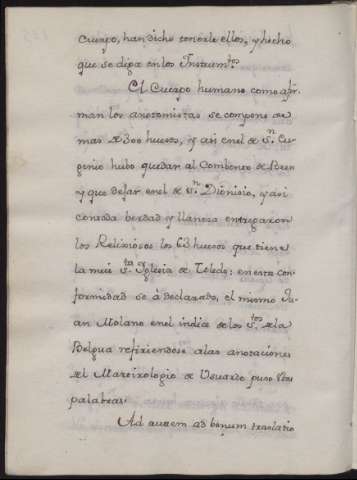 cuerpo, han dicho tenerle ellos, y hecho
que se diga en los Instrum.tos
El Cuerpo humano como afir-
man los anotomistas se compone de
mas de 300 huesos, y asi en el de S.n Eu-
genio hubo que dar al Combento de Breu
y que dejar en el de S.n Dionisio, y asi
con toda berdad y llaneza entregaron
los Religiosos los 62 huesos que tiene
la mui S.ta Yglesia de Toledo: en esta con-
formidad se à declarado, el mismo Ju-
an Molano en el indice de los S.tos de la
Belgua refiriendose a las anotaciones
del Marcixologio de Usuardo puso
palabras
Ad autem ad bonum translatio